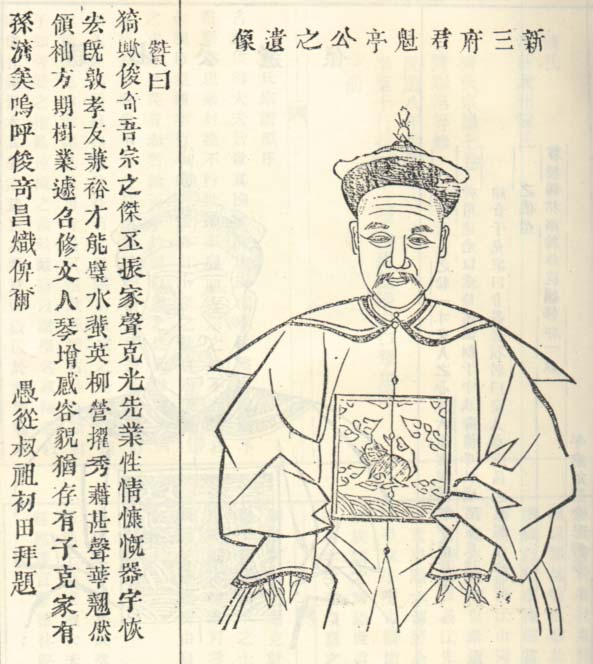 新三府君魁亭公之遺像
贊曰
猗歟俊奇吾宗之傑丕振家聲克光先業性情慷慨器宇恢
宏旣敦孝友兼裕才能璧水蜚英柳營擢秀藉甚聲華翹然
領袖方期樹業遽召修文人琴增感容貌猶存有子克家有
孫濟美嗚呼俊奇昌熾俾爾　愚從叔祖初田拜題